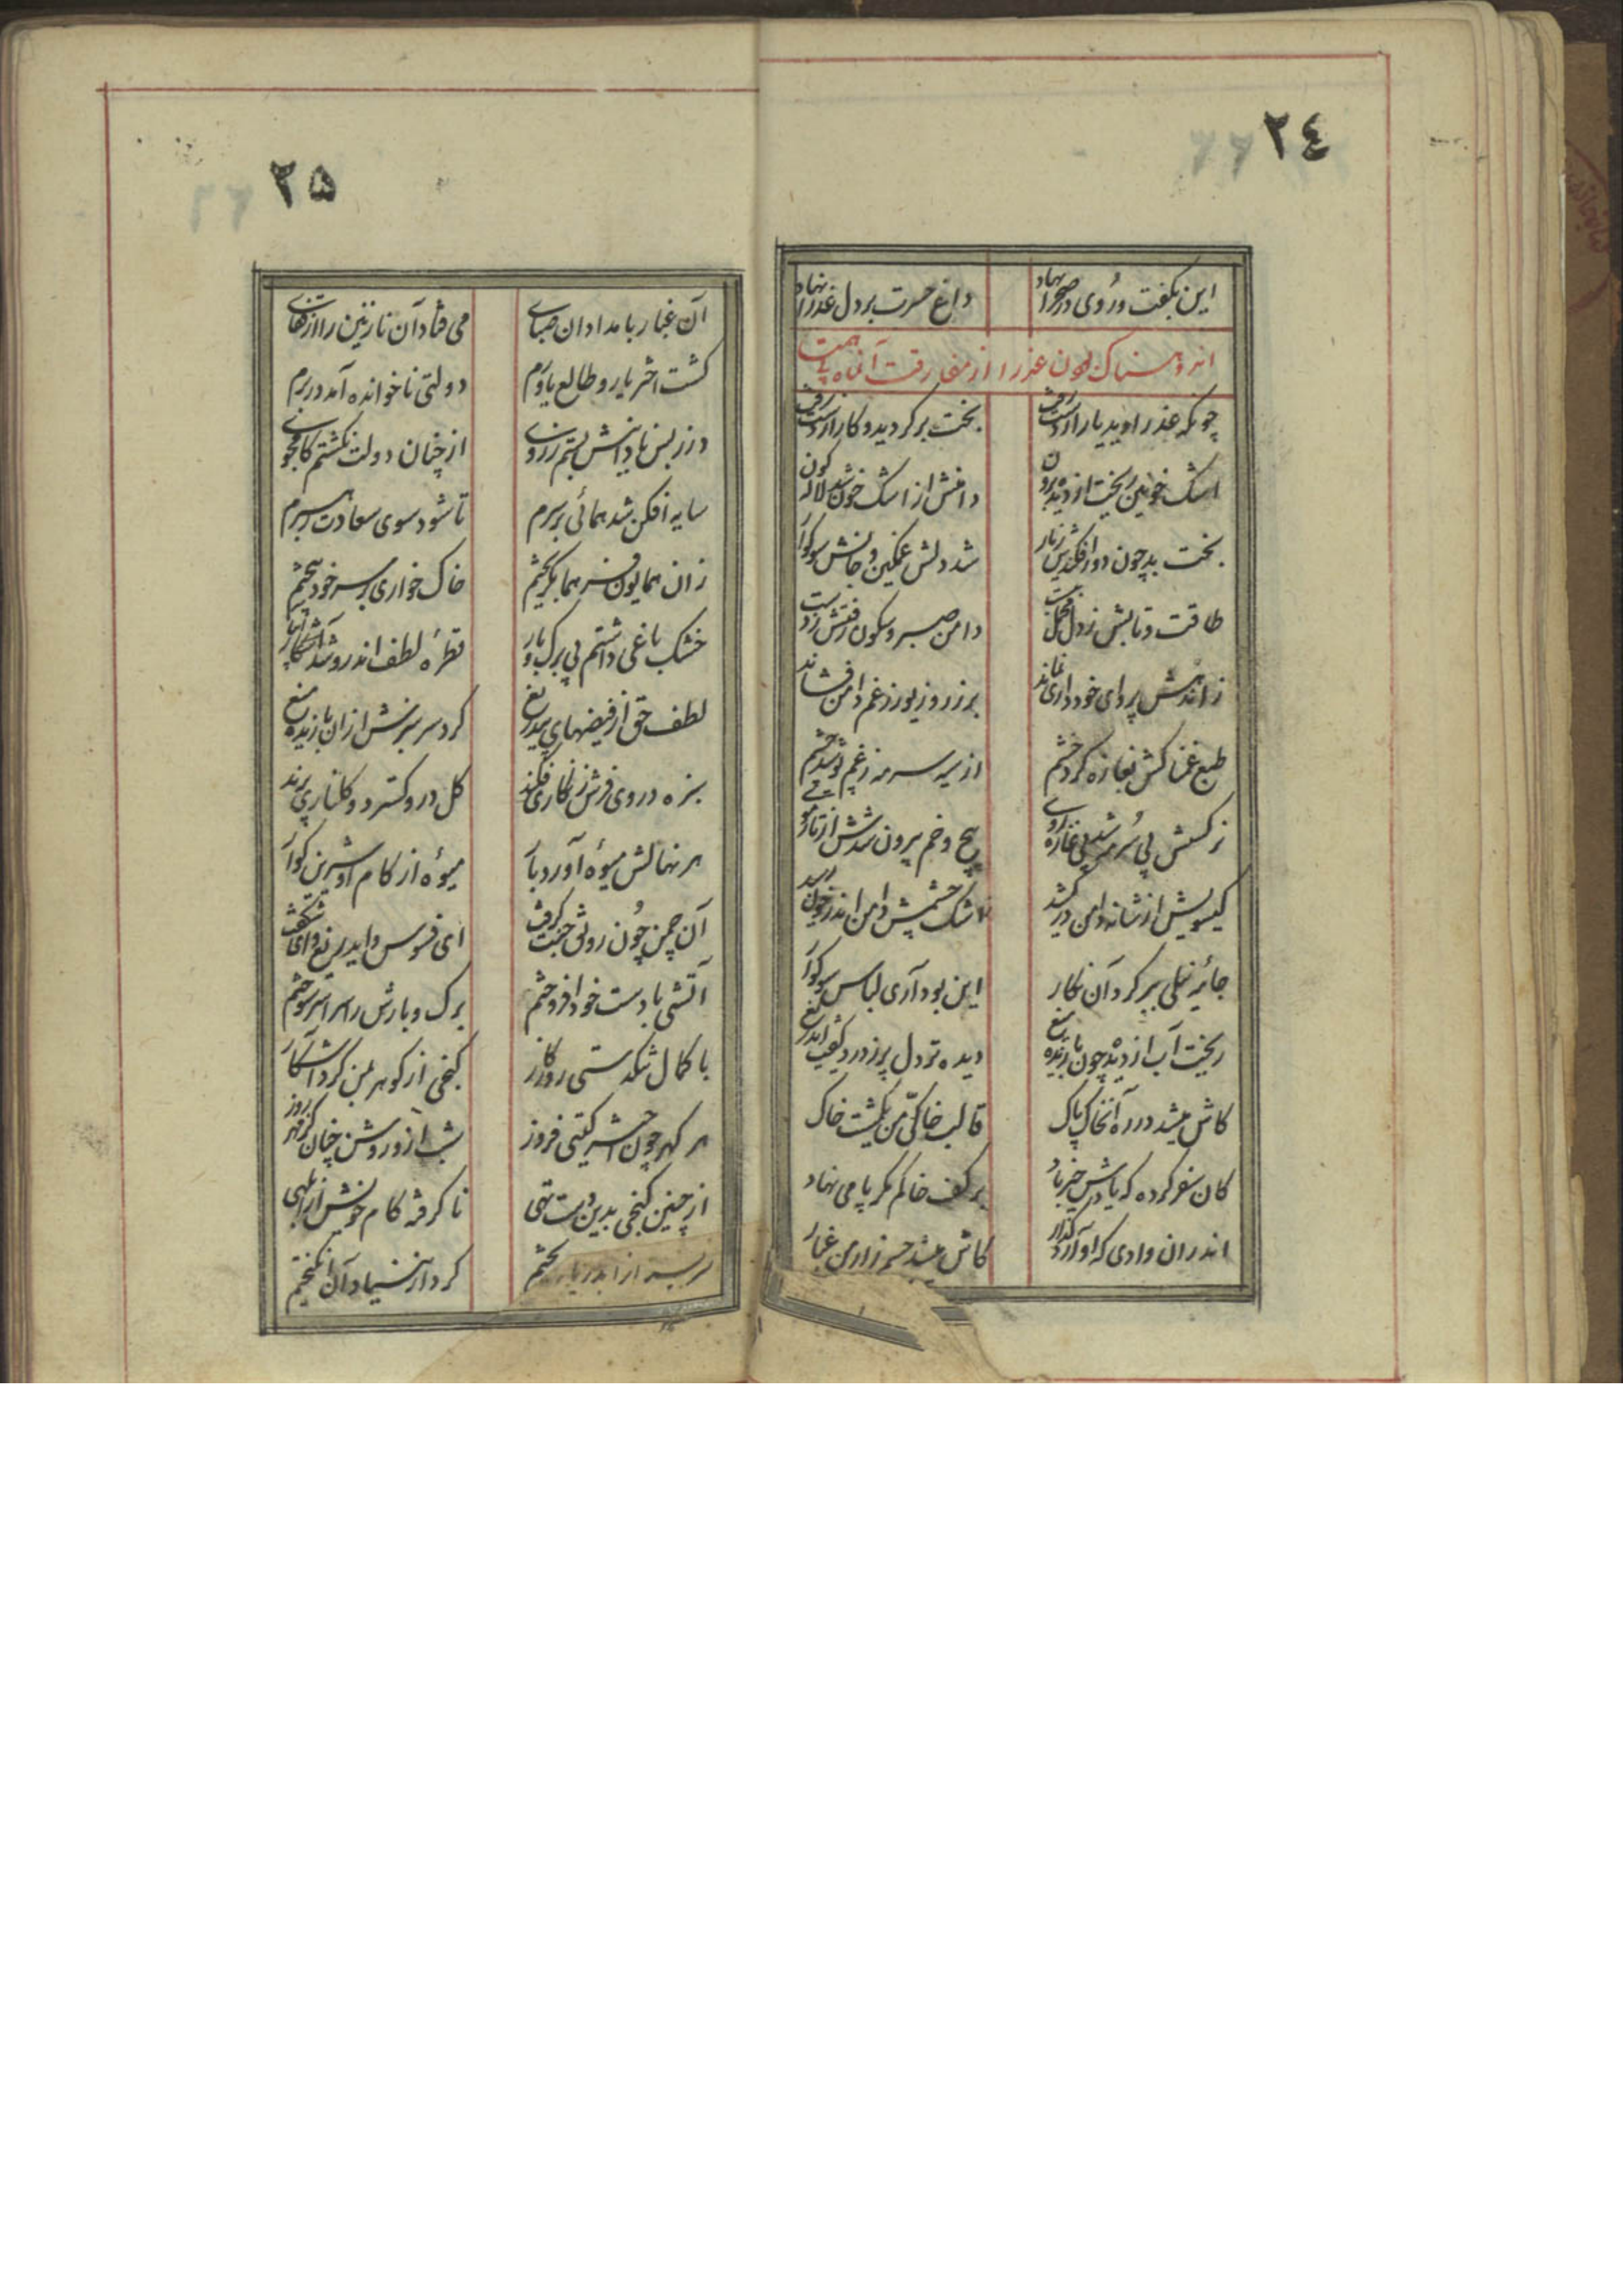 ٢٤
این بگفت و روی در صحرا نهاد داغ حسرت بر دل عذرا نهاد
اندوهناک شدن عذرا از مفارقت آنماه
چونکه عذرا دید یار از دست رفت بخت برگردید و کار از دست رفت
اشک خونین ریخت از دیده برون دامنش از اشک خون شد لاله گون
بخت بد چون دور افکندش ز یار شد دلش غمگین و جانش سوگوار
طاقت و تابش ز دل دامن صبر و سکون رفتش ز دست
ز اندهش پروای خودداری نماند بر زر و زیور ز غم دامن فشاند
طبع غمناکش بغازه کرد خشم از سیه سرمه ز غم پوشید چشم
نرگسش بی سرمه شد بی غازه روی پیچ و خم بیرون شدش از تار موی
گیسویش از شانه دامن در کشید اشک چشمش دامن اندر خون کشید
جامه نیلی ببر کرد آن نگار این بود آری لباس سوگوار
ریخت آب از دیده چون بارنده میغ دیده تر دل پر ز درد گفت ایدریغ
کاش میشد در ره آنخاک پاک قالب خاکی من یکمشت خاک
کان سفر کرده که یادش خیر باد بر کف خاکم مگر پا می نهاد
اندران وادی که او آرد گذار کاش میشد جسم زار من غبار
٢٥
آن غبار بامدادان صبای می فتاد آن نازنین را از قفای
گشت اختر یار و طالع یاورم دولتی ناخوانده آمد در برم
در ز بس نادانیش بستم بروی از چنان دولت نگشتم کامجوی
سایه افکن شد همائی بر سرم تا شود سوی سعادت رهبرم
زان همایون فر هما بگریختم خاک خواری بر سر خود بیختم
خشک باغی داشتم بی برگ و بار قطره لطف اندرو شد آشکار
لطف حق از فیضهای بیدریغ کرد سرسبزش ازان بارنده میغ
سبزه در وی فرش زنگاری فکند گل درو گسترد گلناری پرند
هر نهالش میوه آورد بار میوه از کام او شیرین گوار
آن چمن چون رونق جنت گرفت ای فسوس و ایدریغ و ای شگفت
آتشی با دست خود افروختم برگ و بارش را سراسر سوختم
با کمال تنگدستی روزگار گنجی از گوهر بمن کرد آشکار
هر گهر چون اختر گیتی فروز شب ازو روشن چنان کز مهر روز
از چنین گنجی بدین دست تهی ناگرفته کام خویش از ابلهی
سربسر